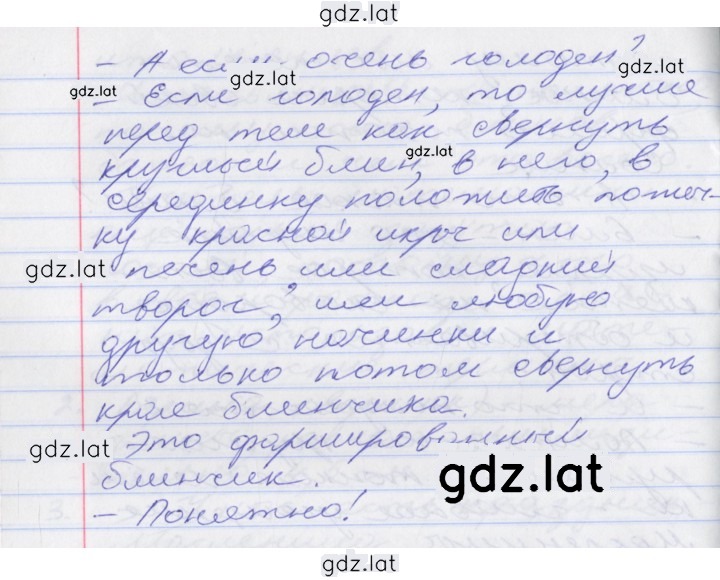 gdz.lat
– А если очень голоден?
gdz.lat gdz.lat
gdz.lat
– Если голоден, то лучше
перед тем как свернуть
круглый блин, в него, в
gdz.lat
серединку положить ложеч-
ку красной икры или
gdz.lat
печень или сладкий
творог, или любую
другую начинки и
только потом свернуть
края блинчика.
Это фаршированный
gdz.lat
блинчик.
gdz.lat
– Понятно!
gdz.lat